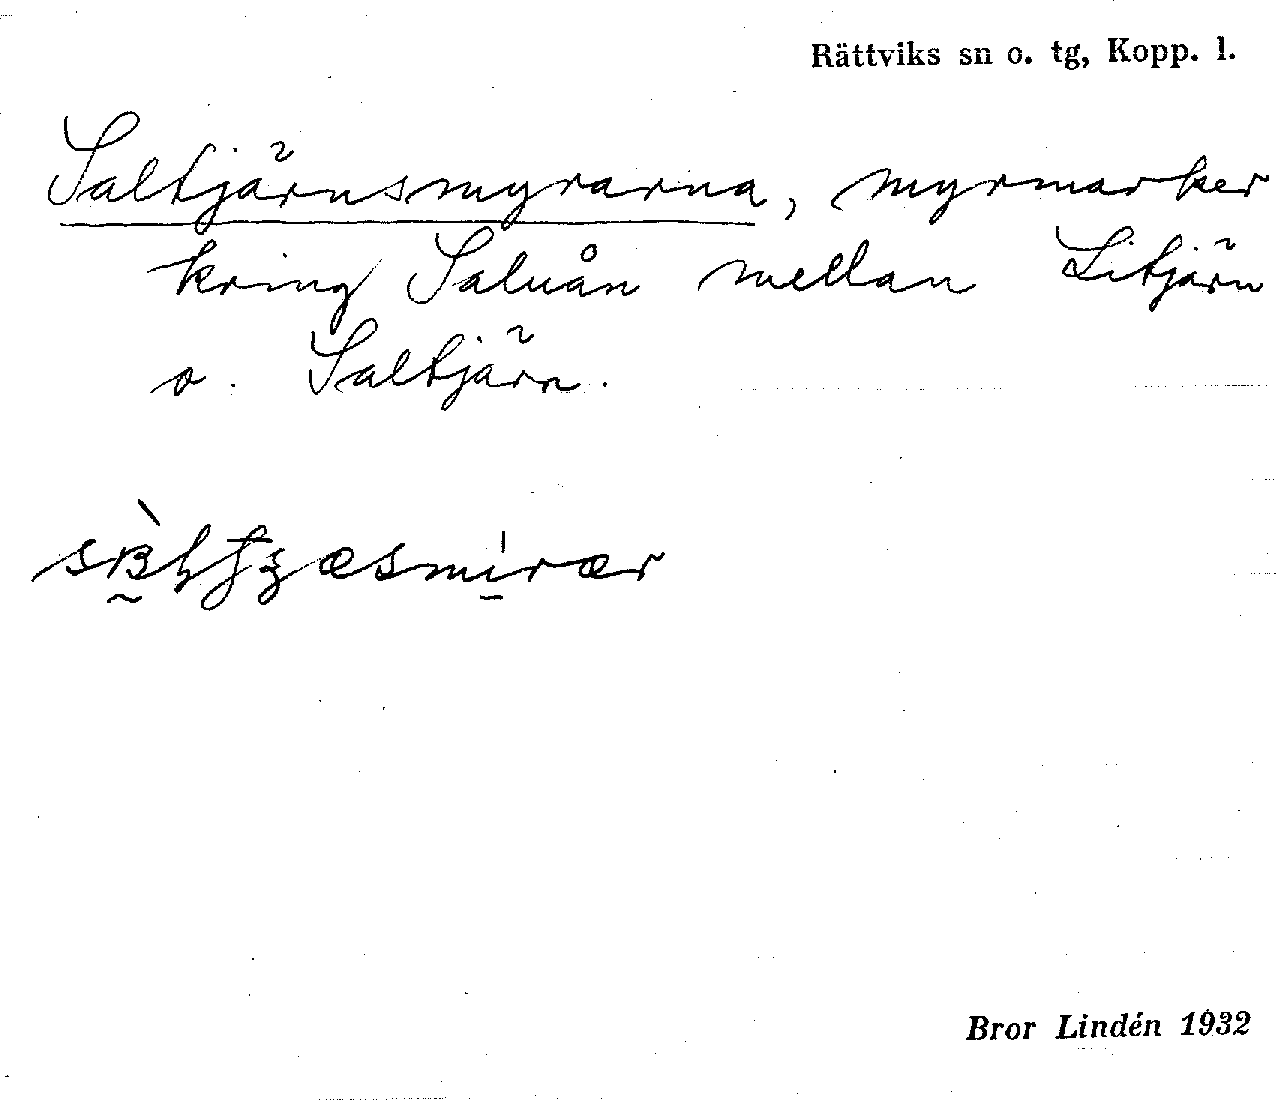 Rättviks sn o. tg, Kopp. l.
Saltjärnsmyrarna, myrmarker
kring Saluån mellan Litjärn
o. Saltjärn.
Bror Lindén 1932